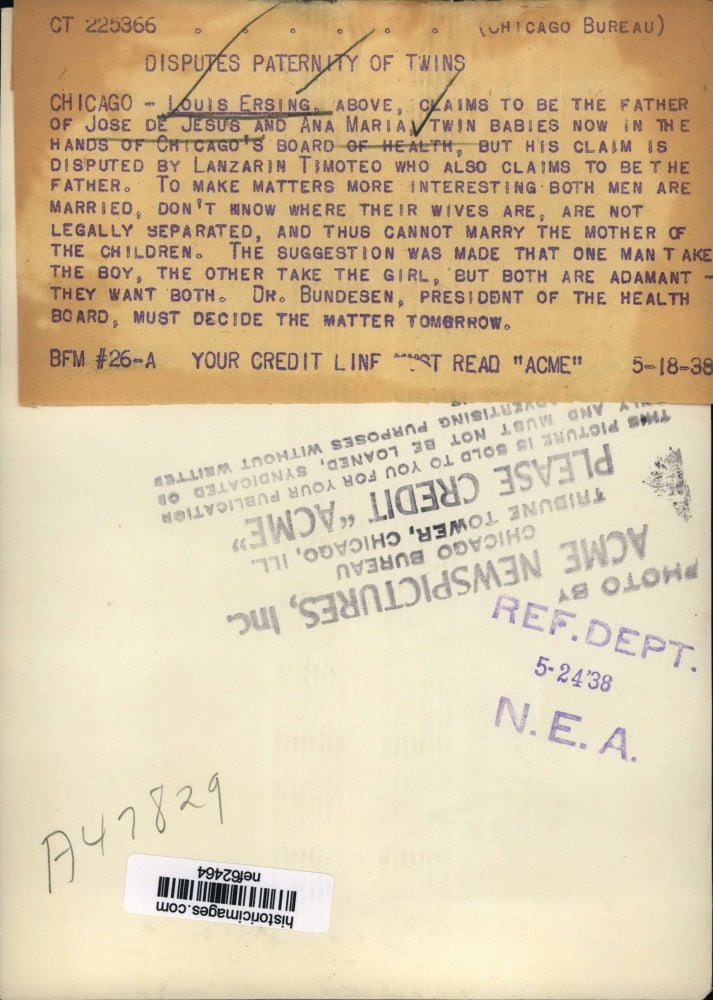 CT 225366 . . . . . . . (CHICAGO BUREAU)
DISPUTES PATERNITY OF TWINS
CHICAGO - LOUIS ERSING, ABOVE, CLAIMS TO BE THE FATHER
OF JOSE DE JESUS AND ANA MARIA, TWIN BABIES NOW IN THE
HANDS OF CHICAGO'S BOARD OF HEALTH, BUT HIS CLAIM IS
DISPUTED BY LANZARIN TIMOTEO WHO ALSO CLAIMS TO BE THE
FATHER. TO MAKE MATTERS MORE INTERESTING BOTH MEN ARE
MARRIED, DON'T KNOW WHERE THEIR WIVES ARE, ARE NOT
LEGALLY SEPARATED, AND THUS CANNOT MARRY THE MOTHER OF
THE CHILDREN. THE SUGGESTION WAS MADE THAT ONE MAN TAKE
THE BOY, THE OTHER TAKE THE GIRL, BUT BOTH ARE ADAMANT -
THEY WANT BOTH. DR. BUNDESEN, PRESIDENT OF THE HEALTH
BOARD, MUST DECIDE THE MATTER TOMORROW.
BFM #26-A YOUR CREDIT LINE MUST READ "ACME" 5-18-38
PHOTO BY
ACME NEWSPICTURES, Inc.
CHICAGO BUREAU
TRIBUNE TOWER, CHICAGO, ILL.
PLEASE CREDIT "ACME"
THIS PICTURE IS SOLD TO YOU FOR YOUR PUBLICATION
ONLY AND MUST NOT BE LOANED, SYNDICATED OR
ADVERTISING PURPOSES WITHOUT WRITTEN
REF. DEPT.
5-24'38
N.E.A.
A47829
historicimages.com
nef62464